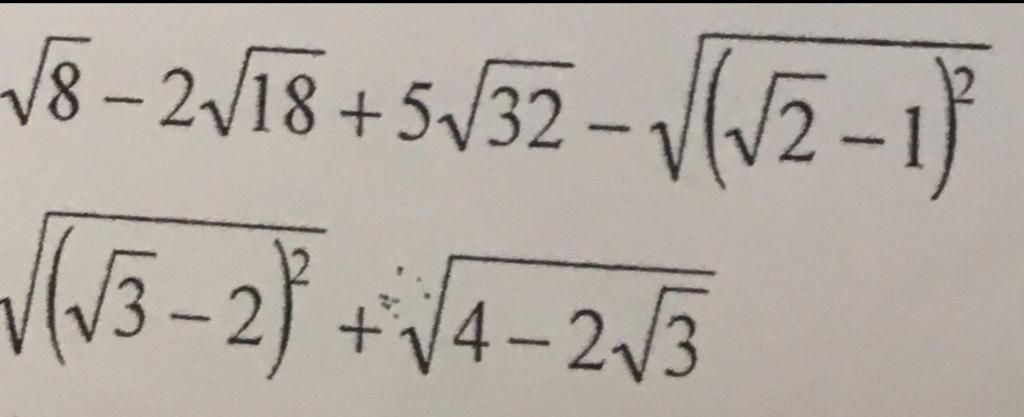 √8 − 2√18 + 5√32 − √((√2 − 1)²)
√((√3 − 2)²) + √(4 − 2√3)